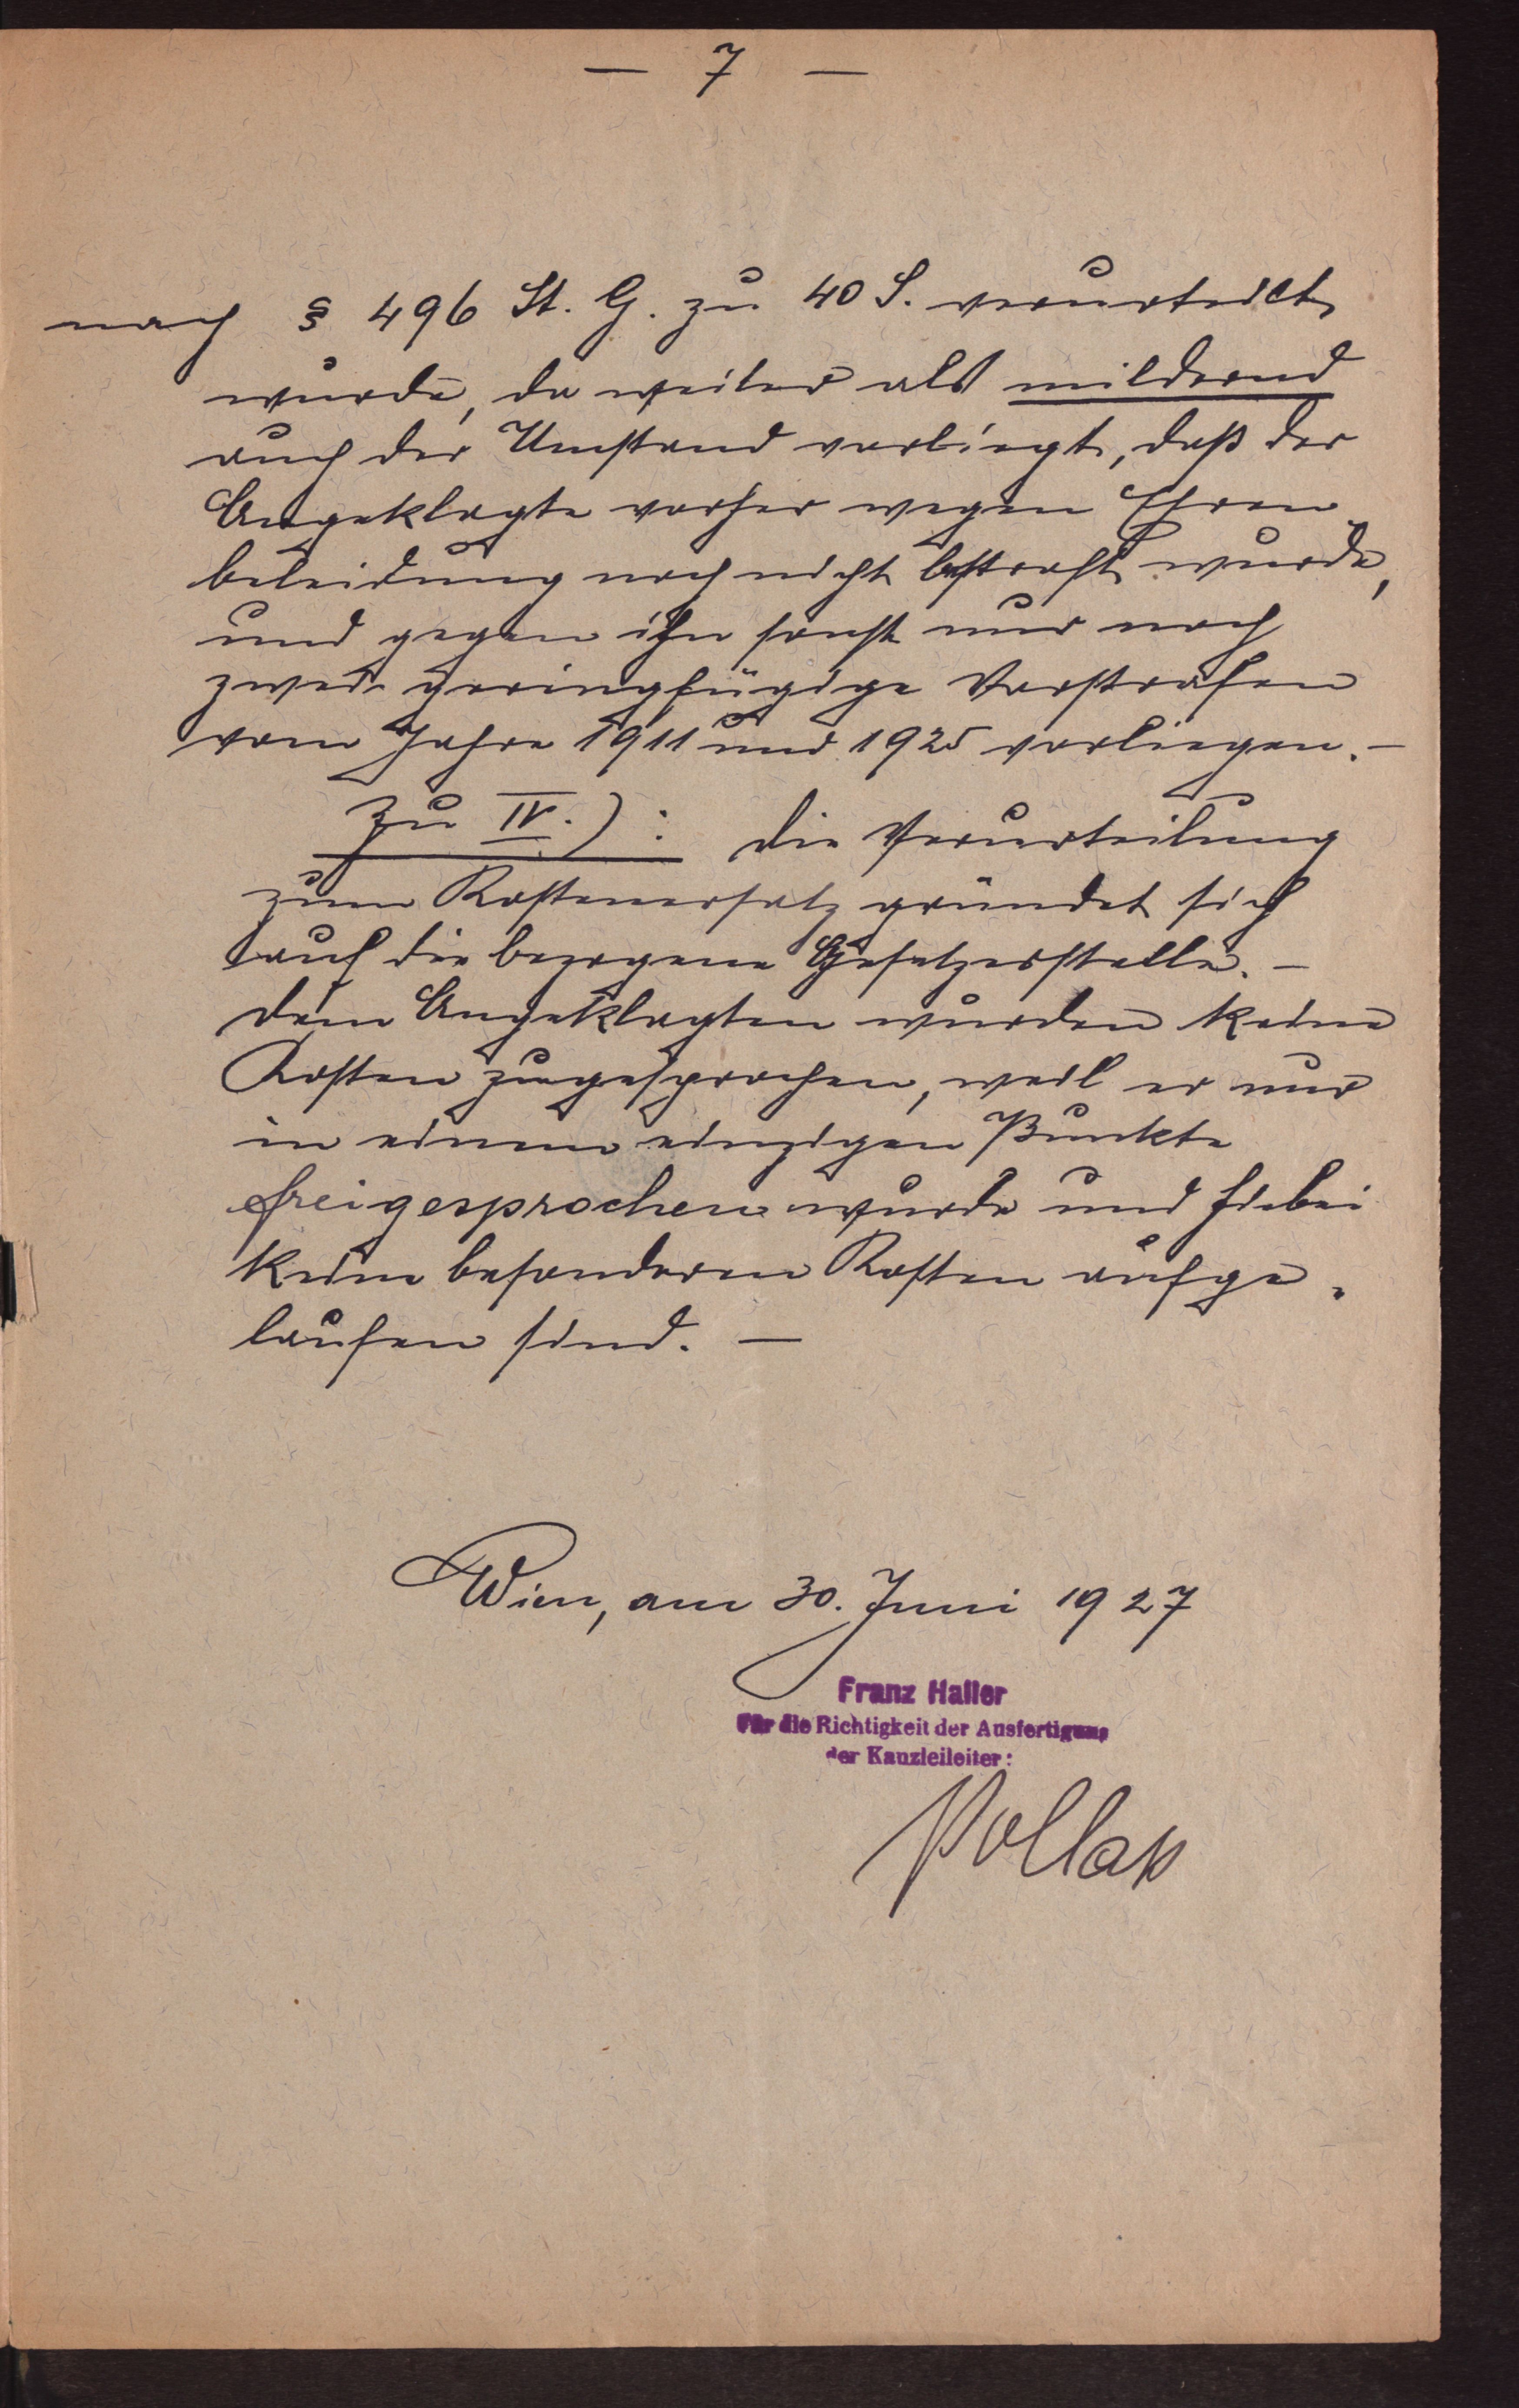 — 7 —
nach § 496 St. G. zu 40 S. verurteilt
wurde, da weiter als mildernd
auch der Umstand vorliegt, daß der
Angeklagte vorher wegen Ehren
beleidung noch nicht bestraft wurde,
und gegen ihn sonst nur noch
zwei geringfügige Vorstrafen
vom Jahre 1911 und 1925 vorliegen. —
Zu IV.): die Verurteilung
zum Kostenersatz gründet sich
auf die bezogene Gesetzesstelle. —
dem Angeklagten wurden keine
Kosten zugesprochen, weil er nur
in einem einzigen Punkte
freigesprochen wurde und hiebei
keine besonderen Kosten aufge-
laufen sind. —
Wien, am 30. Juni 1927
Franz Haller
Für die Richtigkeit der Ausfertigung
der Kanzleileiter:
Pollak